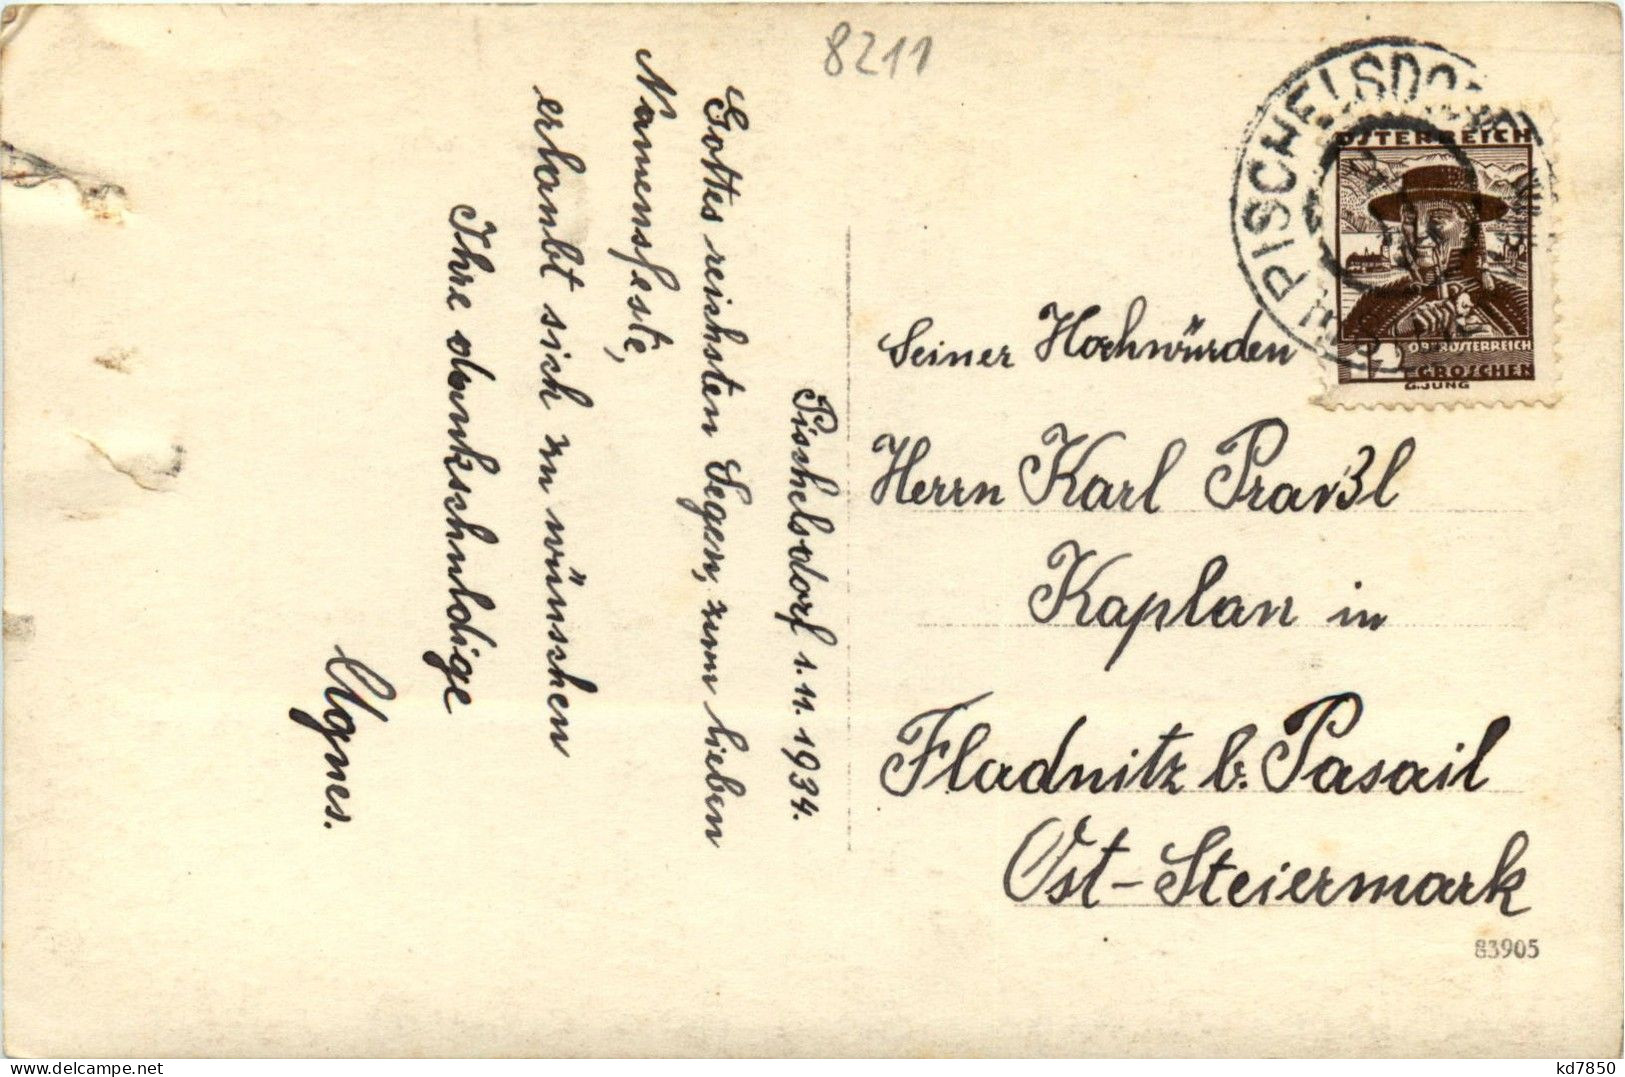 8211
Pischelsdorf 1.11.1934.
Gottes reichsten Segen, zum lieben
Namensfeste,
erlaubt sich zu wünschen
Ihre dankschuldige
Agnes.
PISCHELSDORF
ÖSTERREICH
12
OBERÖSTERREICH
GROSCHEN
G.JUNG
Seiner Hochwürden
Herrn Karl
Kaplan in
Fladnitz b. Pasail
Ost-Steiermark
83905
kd7850